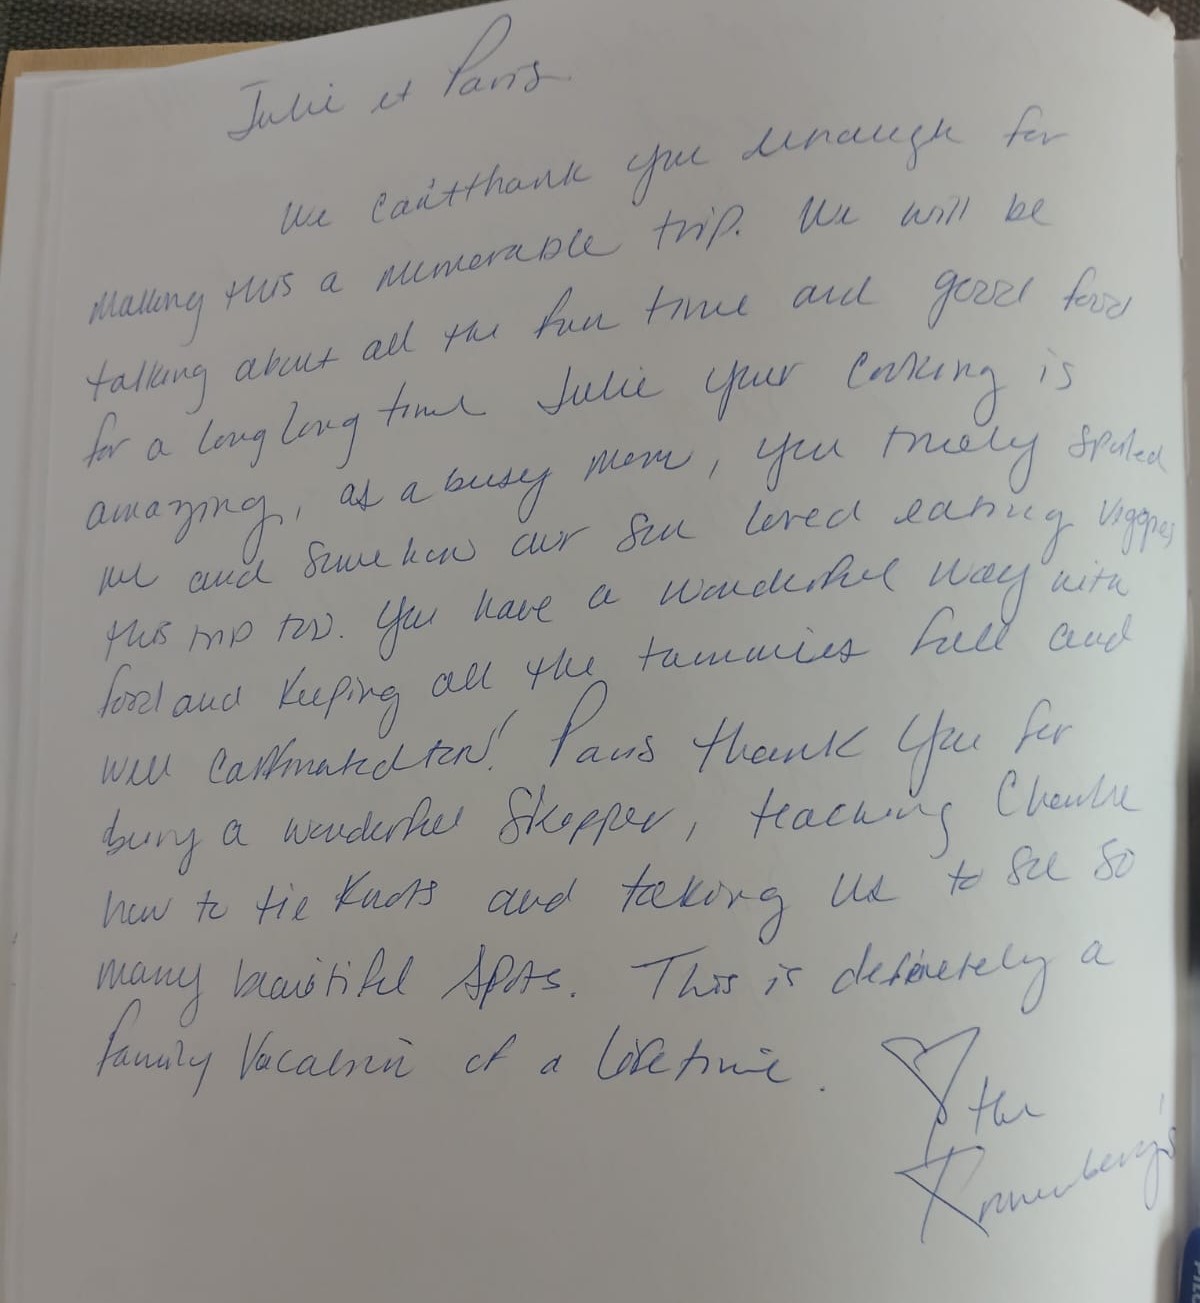 Julie et Paris
We can't thank you enough for
making this a memorable trip. We will be
talking about all the fun time and good food
for a long long time Julie your cooking is
amazing, as a busy mom, you truely spoiled
me and somehow our son loved eating veggies
this trip too. You have a wonderful way with
food and keeping all the tummies full and
well too! Paris thank you for
being a wonderful Skipper, teaching Charlie
how to tie knots and taking us to see so
many beautiful spots. This is definetely a
family vacation of a lifetime.
the